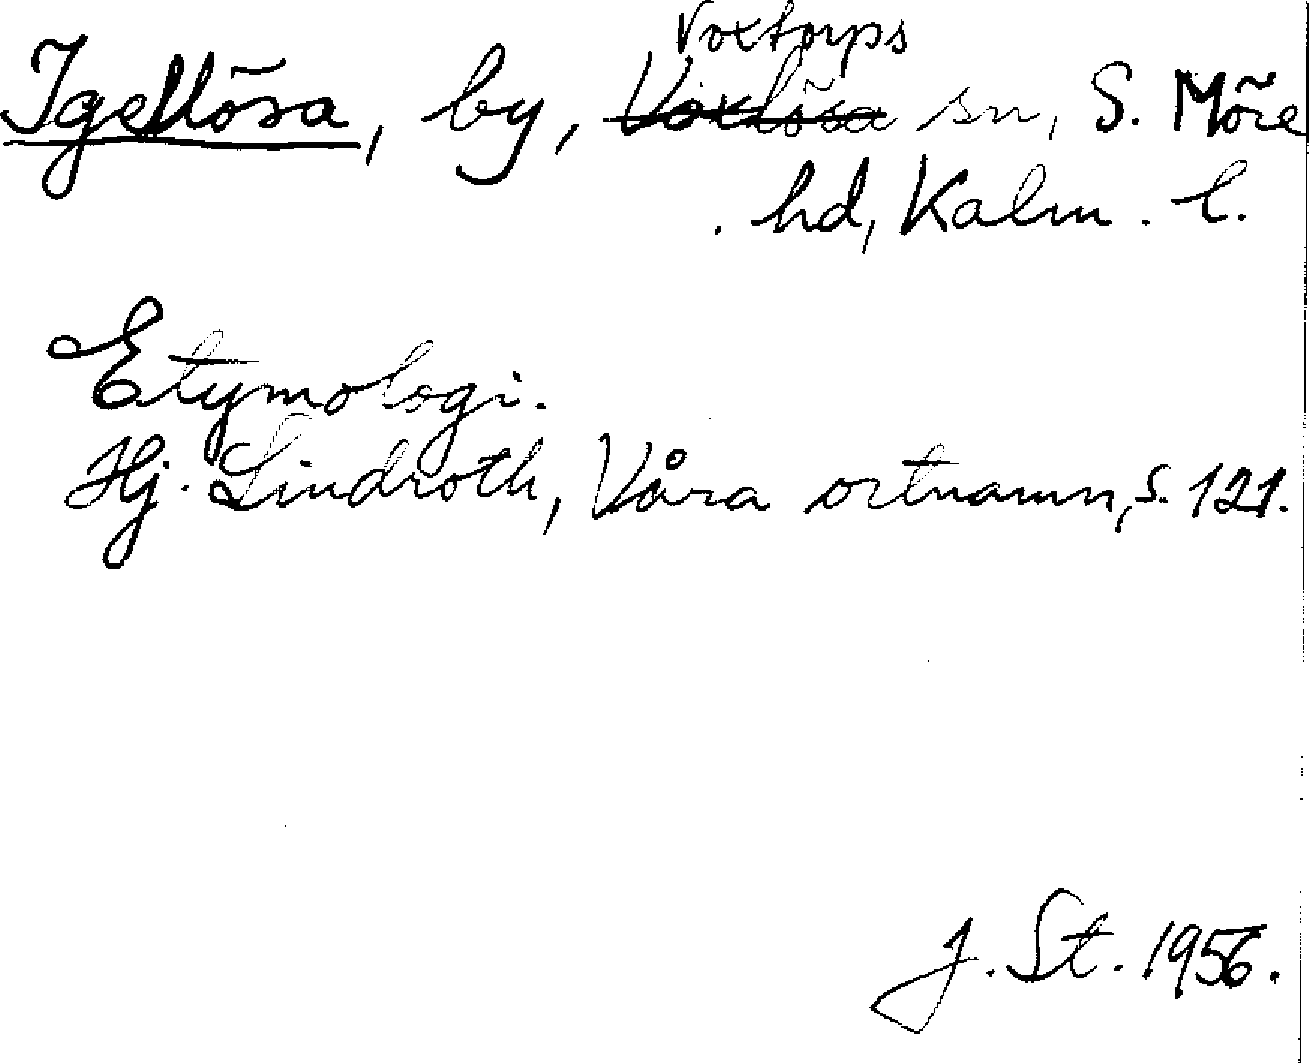 Voxtorps
Igellösa, by, Voxlösa sn, S. Möre
. hd, Kalm. l.
Etymologi.
Hj. Lindroth, Våra ortnamn, s. 121.
J. St. 1956.